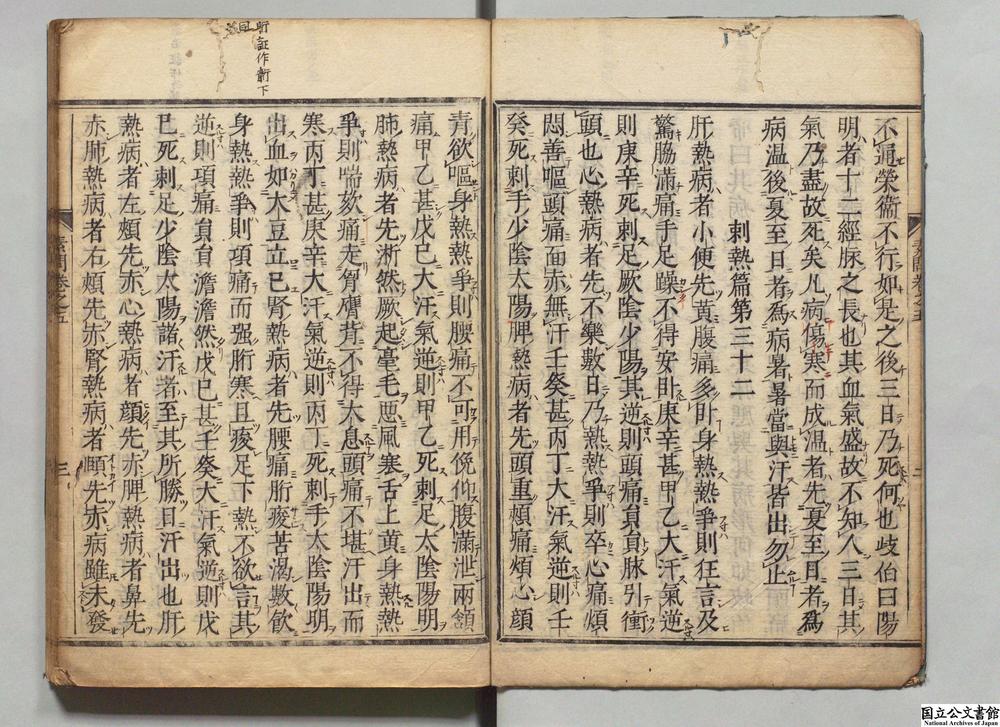 不通榮衞不行如是之後三日乃死何也歧伯曰陽
明者十二經脉之長也其血氣盛故不知人三日其
氣乃盡故死矣凡病傷寒而成温者先夏至日者爲
病温後夏至日者爲病暑暑當與汗皆出勿止
刺熱篇第三十二
肝熱病者小便先黄腹痛多卧身熱熱爭則狂言及
驚脇滿痛手足躁不得安卧庚辛甚甲乙大汗氣逆
則庚辛死刺足厥陰少陽其逆則頭痛員員脉引衝
頭也心熱病者先不樂數日乃熱熱爭則卒心痛煩
悶善嘔頭痛面赤無汗壬癸甚丙丁大汗氣逆則壬
癸死刺手少陰太陽脾熱病者先頭重頰痛煩心顏
青欲嘔身熱熱爭則腰痛不可用俛仰腹滿泄兩頷
痛甲乙甚戊已大汗氣逆則甲乙死刺足太陰陽明
肺熱病者先淅然厥起毫毛惡風寒舌上黄身熱熱
爭則喘欬痛走胷膺背不得太息頭痛不堪汗出而
寒丙丁甚庚辛大汗氣逆則丙丁死刺手太陰陽明
出血如大豆立已腎熱病者先腰痛胻痠苦渴數飲
身熱熱爭則項痛而强胻寒且痠足下熱不欲言其
逆則項痛員員澹澹然戊已甚壬癸大汗氣逆則戊
已死刺足少陰太陽諸汗者至其所勝日汗出也肝
熱病者左頰先赤心熱病者顏先赤脾熱病者鼻先
赤肺熱病者右頰先赤腎熱病者頤先赤病雖未發
素問卷之五
三
国立公文書館
National Archives of Japan